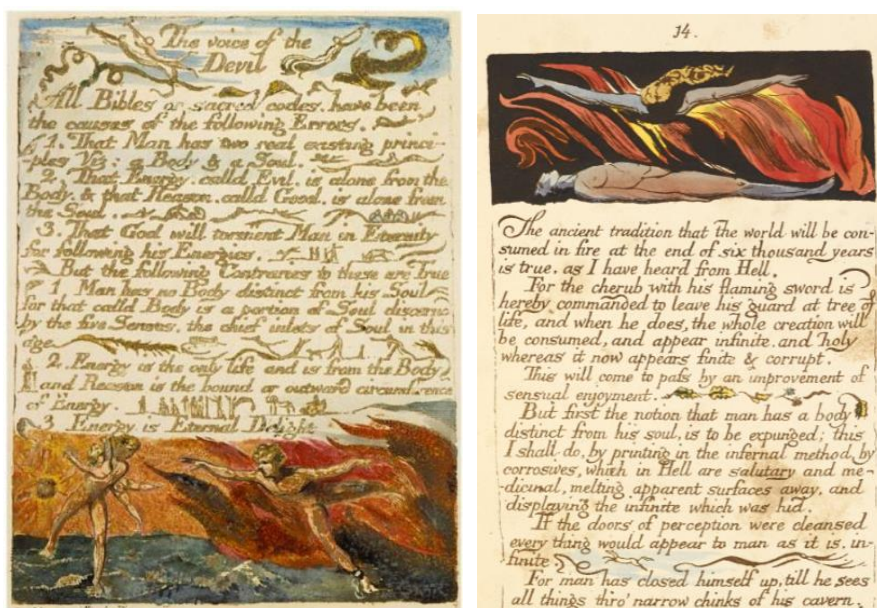 The voice of the
Devil
All Bibles or sacred codes. have been
the causes of the following Errors.
1. That Man has two real existing princi-
ples Viz: a Body & a Soul.
2. That Energy. calld Evil. is alone from the
Body. & that Reason. calld Good. is alone from
the Soul.
3. That God will torment Man in Eternity
for following his Energies.
But the following Contraries to these are True
1 Man has no Body distinct from his Soul
for that calld Body is a portion of Soul discernd
by the five Senses. the chief inlets of Soul in this
age
2. Energy is the only life and is from the Body
and Reason is the bound or outward circumference
of Energy.
3 Energy is Eternal Delight
14.
The ancient tradition that the world will be con-
sumed in fire at the end of six thousand years
is true. as I have heard from Hell.
For the cherub with his flaming sword is
hereby commanded to leave his guard at tree of
life, and when he does, the whole creation will
be consumed, and appear infinite. and holy
whereas it now appears finite & corrupt.
This will come to pass by an improvement of
sensual enjoyment.
But first the notion that man has a body
distinct from his soul, is to be expunged; this
I shall do, by printing in the infernal method, by
corrosives, which in Hell are salutary and me-
dicinal, melting apparent surfaces away, and
displaying the infinite which was hid.
If the doors of perception were cleansed
every thing would appear to man as it is. in-
finite
For man has closed himself up, till he sees
all things thro' narrow chinks of his cavern.